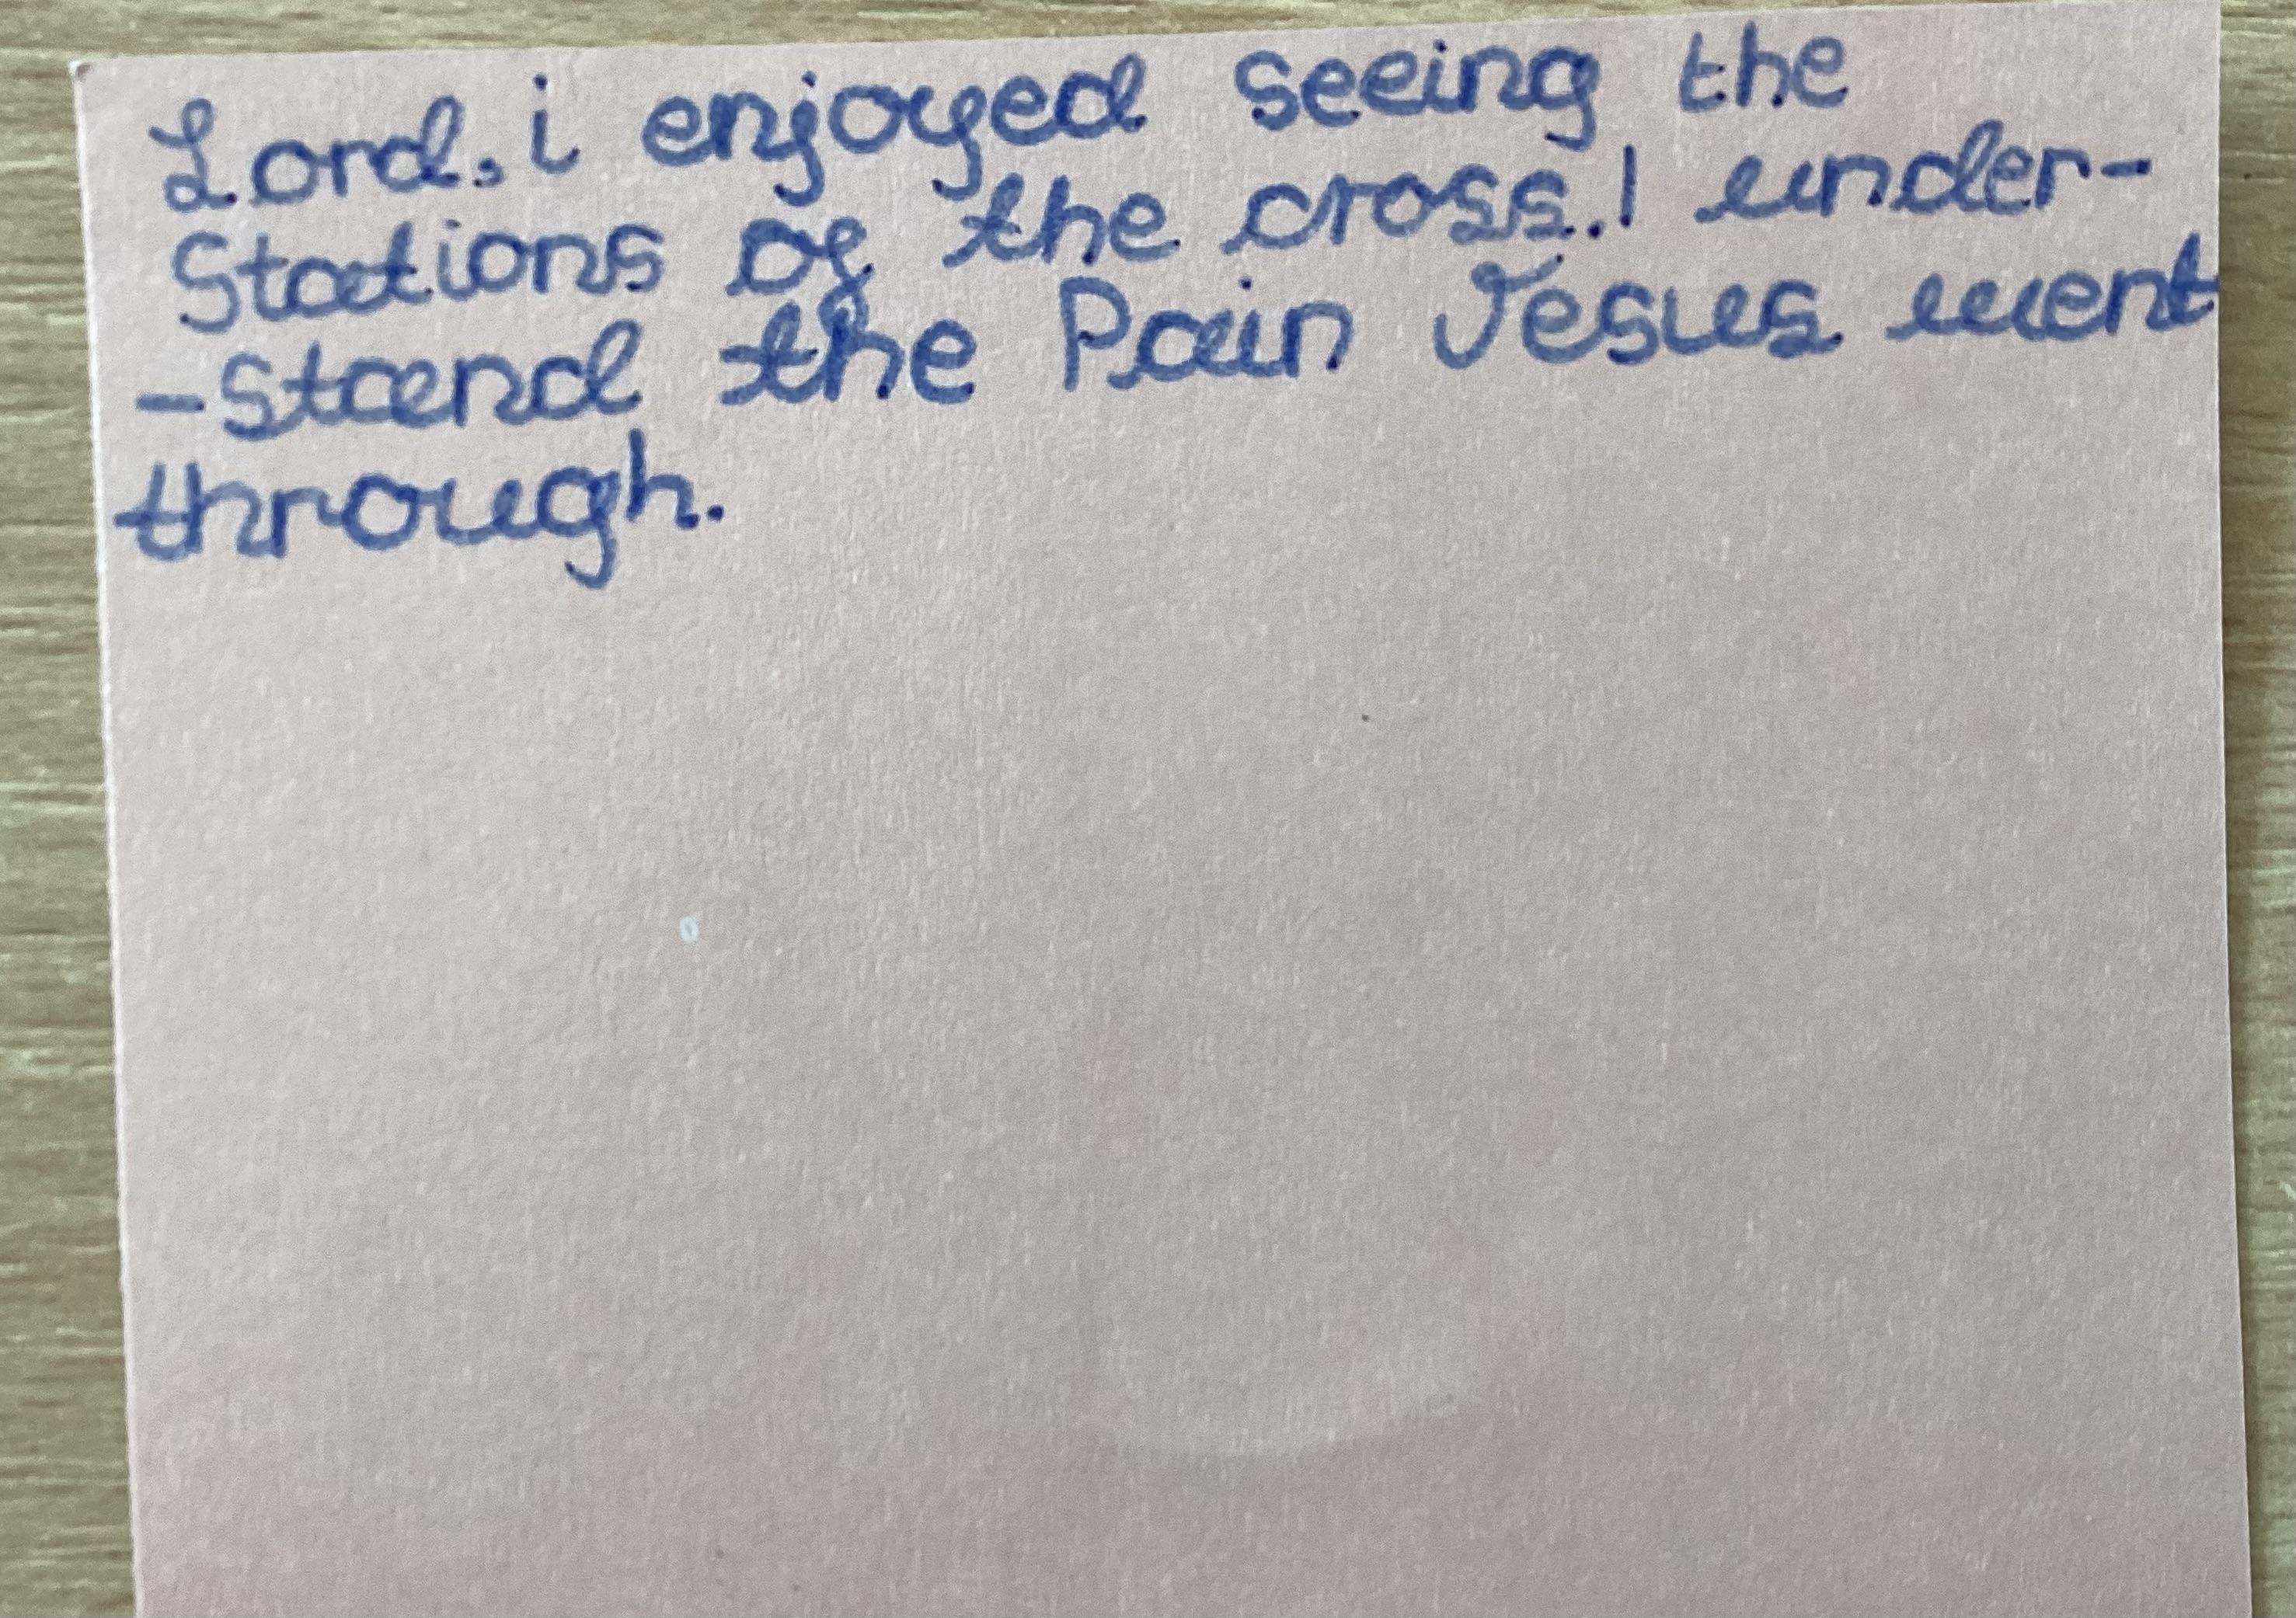 Lord, i enjoyed seeing the
Stations of the cross. I under-
-stand the Pain Jesus went
through.